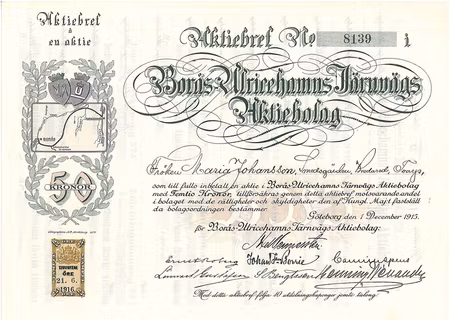 Aktiebref
à
en aktie
50
KRONOR
21. 6.
1916
Aktiebref No 8139 i
Borås-Ulricehamns Järnvägs
Aktiebolag
Fröken Maria Johansson,
som till fullo inbetalt en aktie i Borås-Ulricehamns Järnvägs Aktiebolag
med Femtio Kronor, tillförsäkras genom detta aktiebref motsvarande andel
i bolaget med de rättigheter och skyldigheter den af Kungl. Maj:t fastställ
da bolagsordningen bestämmer.
Göteborg den 1 December 1915.
för Borås-Ulricehamns Järnvägs Aktiebolag:
Lennart Gustafson S. Bengtsson Henning Wenander
Med detta aktiebref följa 10 utdelningskuponger jemte talong.